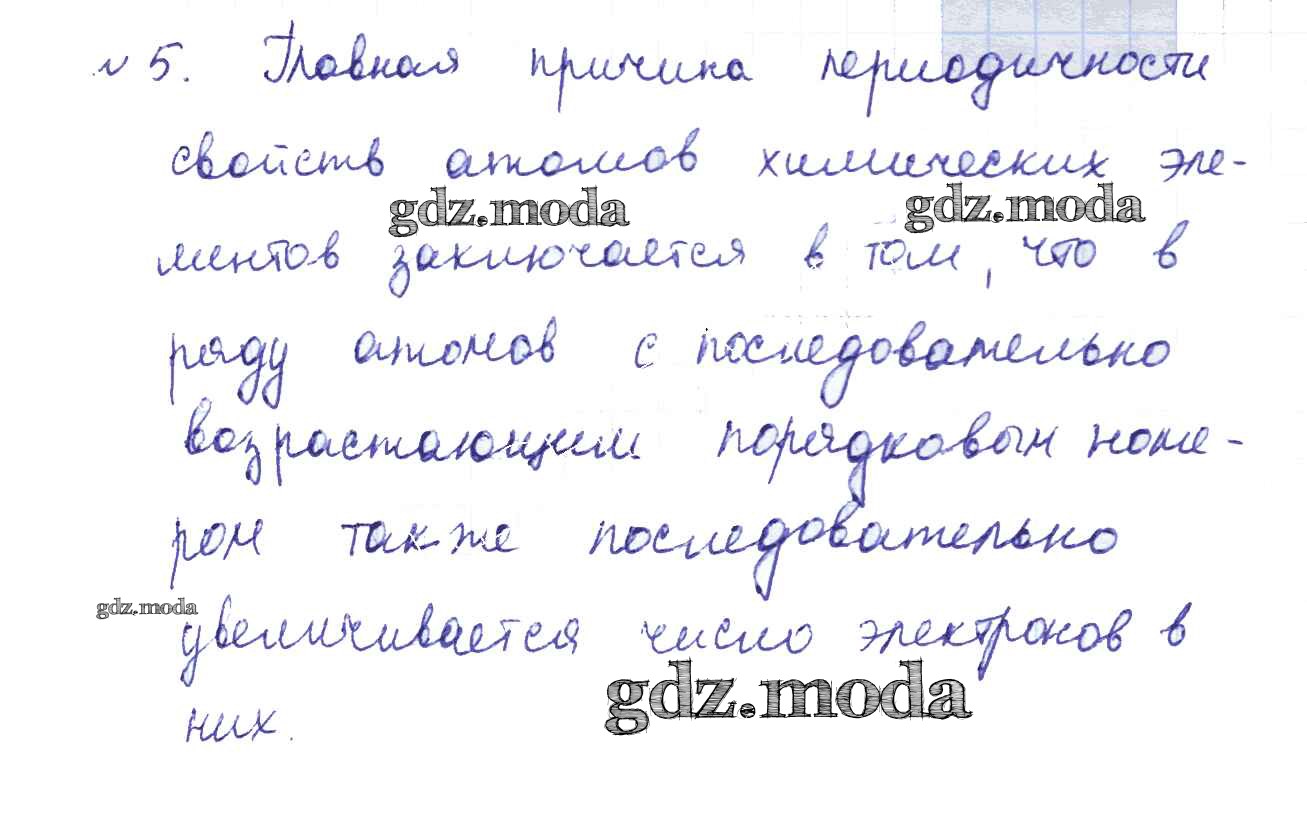 № 5. Главная причина периодичности
свойств атомов химических эле-
gdz.moda gdz.moda
ментов заключается в том, что в
ряду атомов с последовательно
возрастающим порядковым номе-
ром также последовательно
gdz.moda
увеличивается число электронов в
gdz.moda
них.